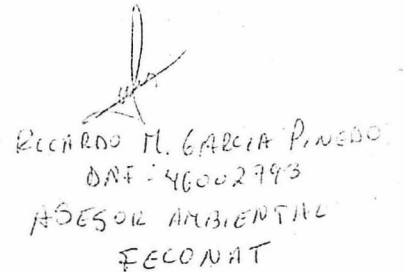 RICCARDO M. GARCIA PINEDO
DNI: 46002793
ASESOR AMBIENTAL
FECONAT